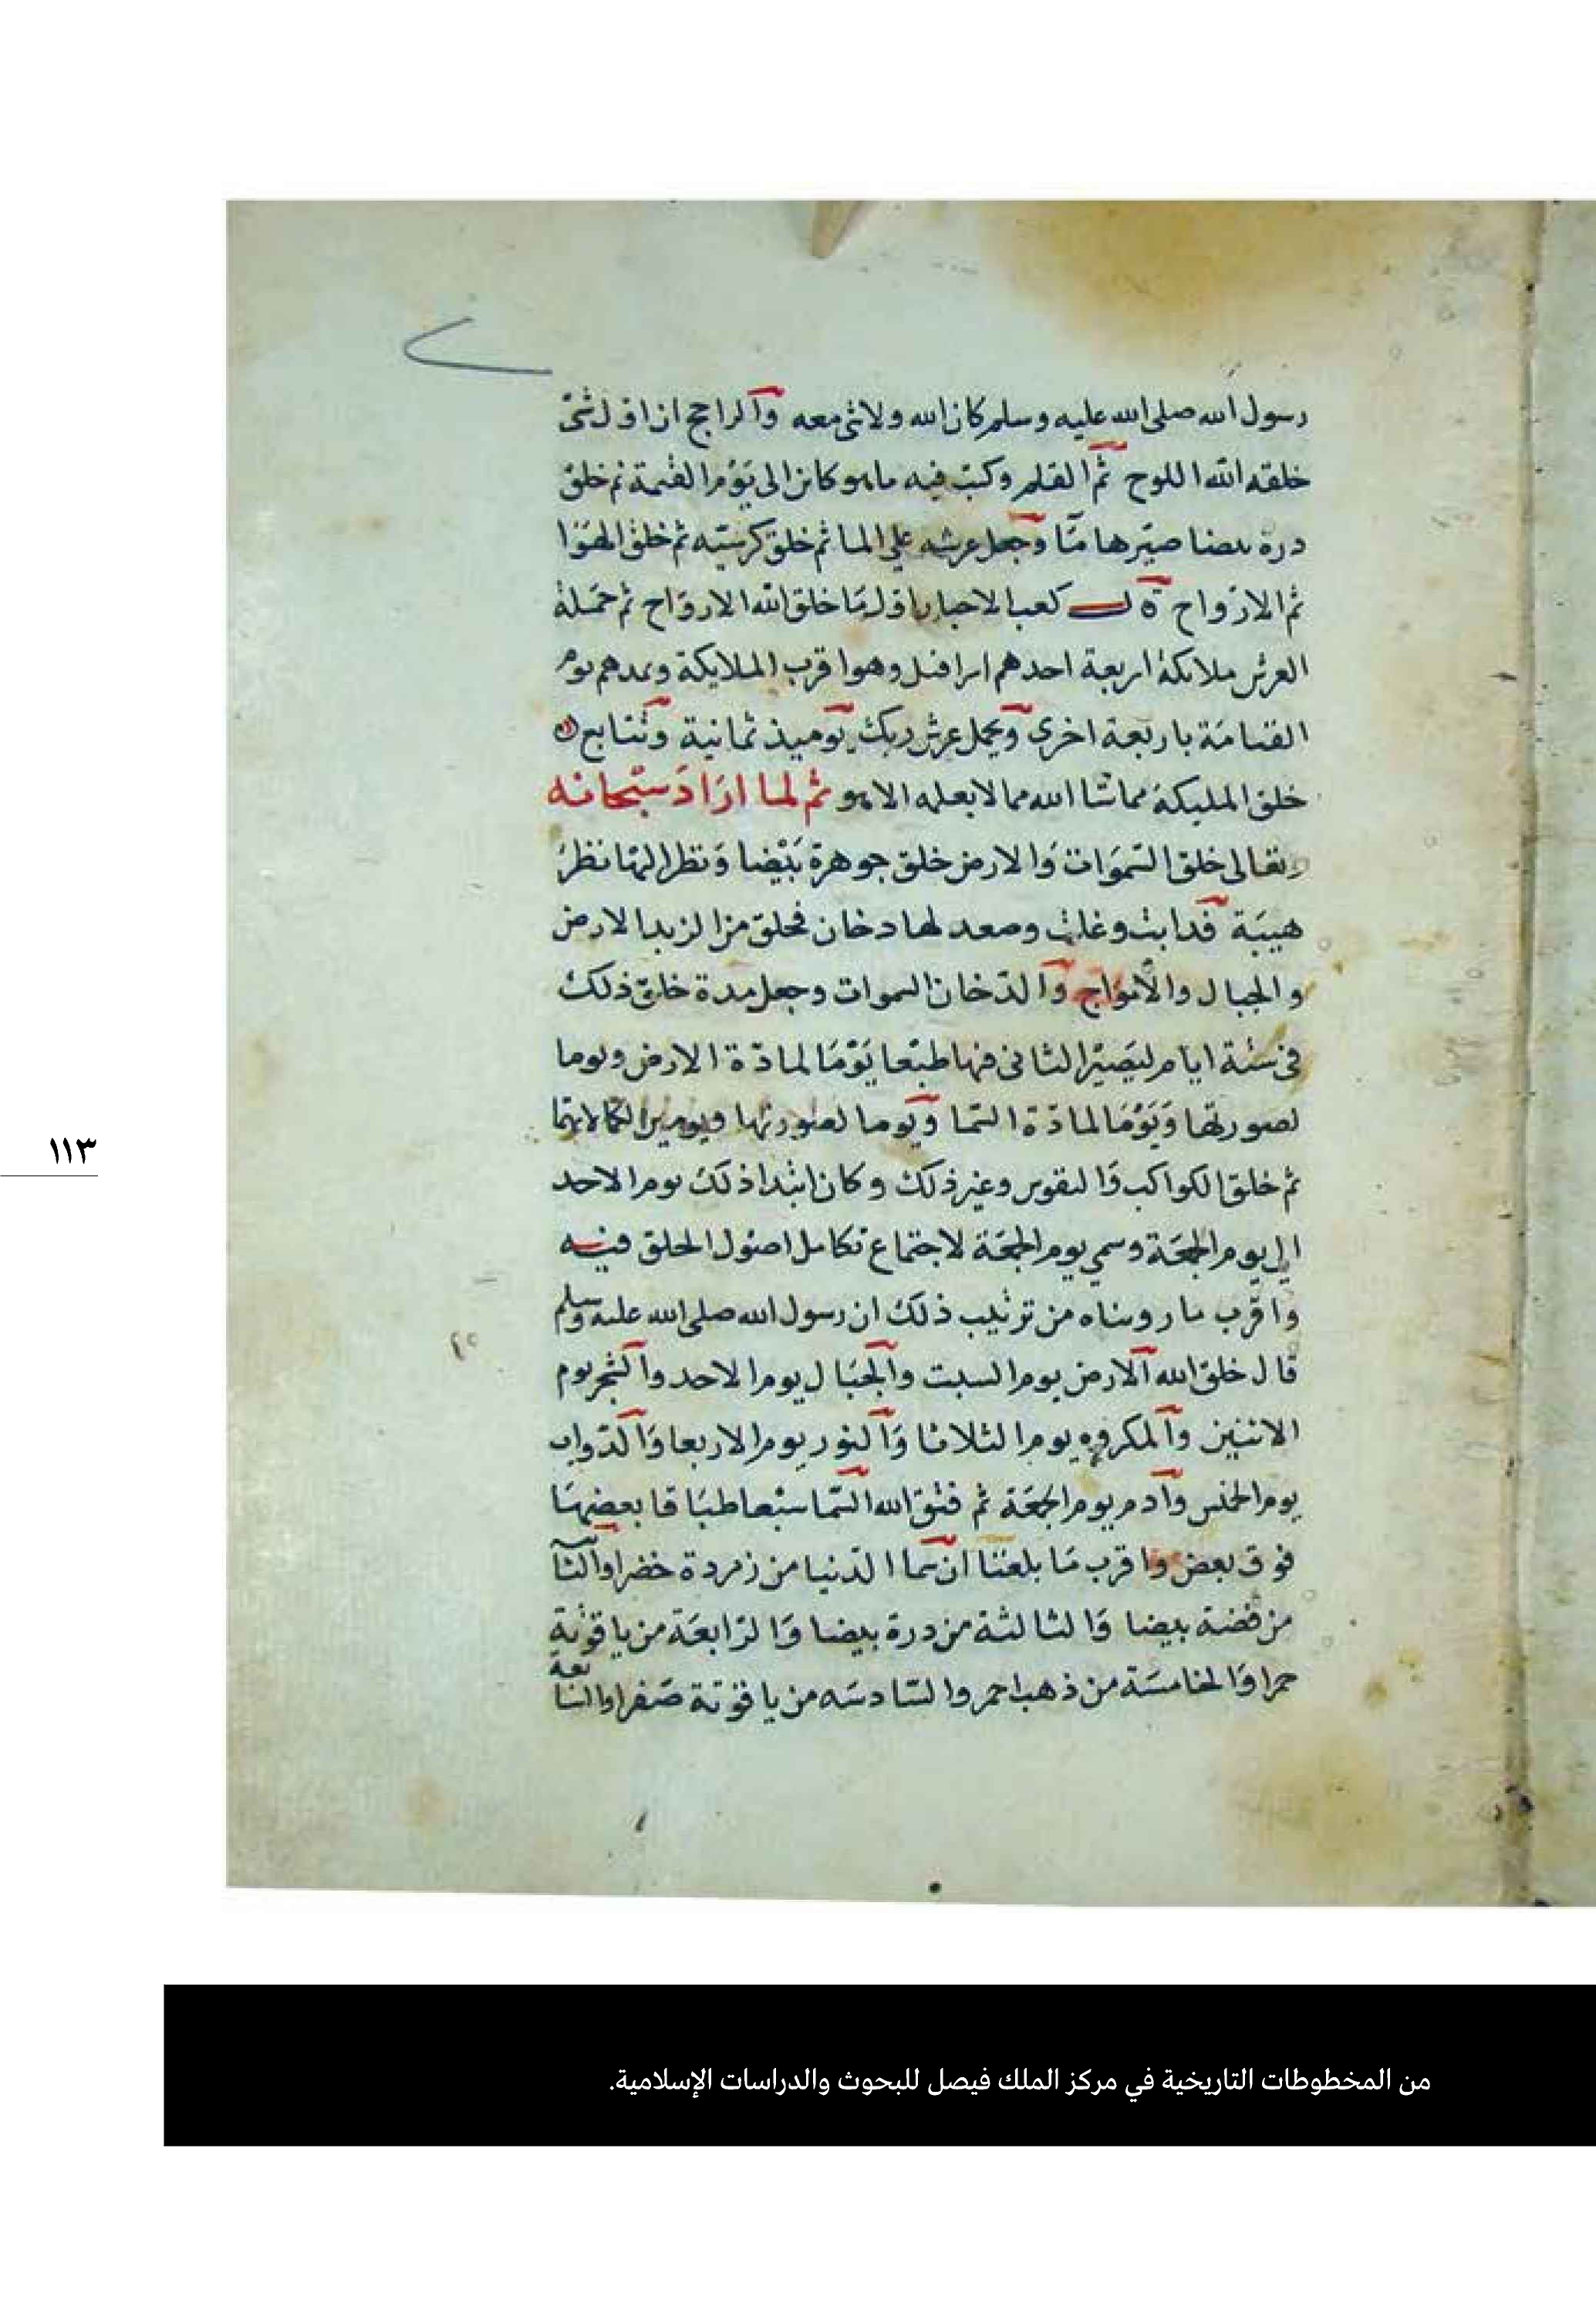 رسول الله صلى الله عليه وسلم كان الله ولا شي معه والراجح ان اول شي
خلقه الله اللوح ثم القلم وكتب فيه ما هو كائن الى يوم القيمة ثم خلق
درة بيضا صيرها مآ وجعل عرشه علي الما ثم خلق كرسيه ثم خلق الهوا
ثم الارواح قال كعب الاحبار اول ما خلق الله الارواح ثم حملة
العرش ملائكة اربعة احدهم اسرافيل وهو اقرب الملايكة ويمدهم يوم
القيامة باربعة اخرى ويحمل عرش ربك يوميذ ثمانية وتتابع
خلق المليكة مما شا الله مما لا يعلمه الا هو ثم لما اراد سبحانه
وتعالى خلق السموات والارض خلق جوهرة بيضا ونظر اليها نظر
هيبة فدابت وغلت وصعد لها دخان فخلق من الزبد الارض
والجبال والامواج والدخان السموات وجعل مدة خلق ذلك
في ستة ايام ليصير الثاني فيها طبعا يوما لمادة الارض ويوما
لصورتها ويوما لمادة السما ويوما لصورتها ويومين لكمالاتهما
ثم خلق الكواكب والنفوس وغير ذلك وكان ابتدا ذلك يوم الاحد
الي يوم الجمعة وسمي يوم الجمعة لاجتماع تكامل اصول الخلق فيه
واقرب ما رويناه من ترتيب ذلك ان رسول الله صلى الله عليه وسلم
قال خلق الله الارض يوم السبت والجبال يوم الاحد والشجر يوم
الاثنين والمكروه يوم الثلاثا والنور يوم الاربعا والدواب
يوم الخميس وآدم يوم الجمعة ثم فتق الله السما سبعا طباقا بعضها
فوق بعض واقرب ما بلغنا ان سما الدنيا من زمردة خضرا والثا
من فضة بيضا والثالثة من درة بيضا والرابعة من ياقوتة
حمرا والخامسة من ذهب احمر والسادسه من ياقوتة صفرا والسابعة
١١٣
من المخطوطات التاريخية في مركز الملك فيصل للبحوث والدراسات الإسلامية.